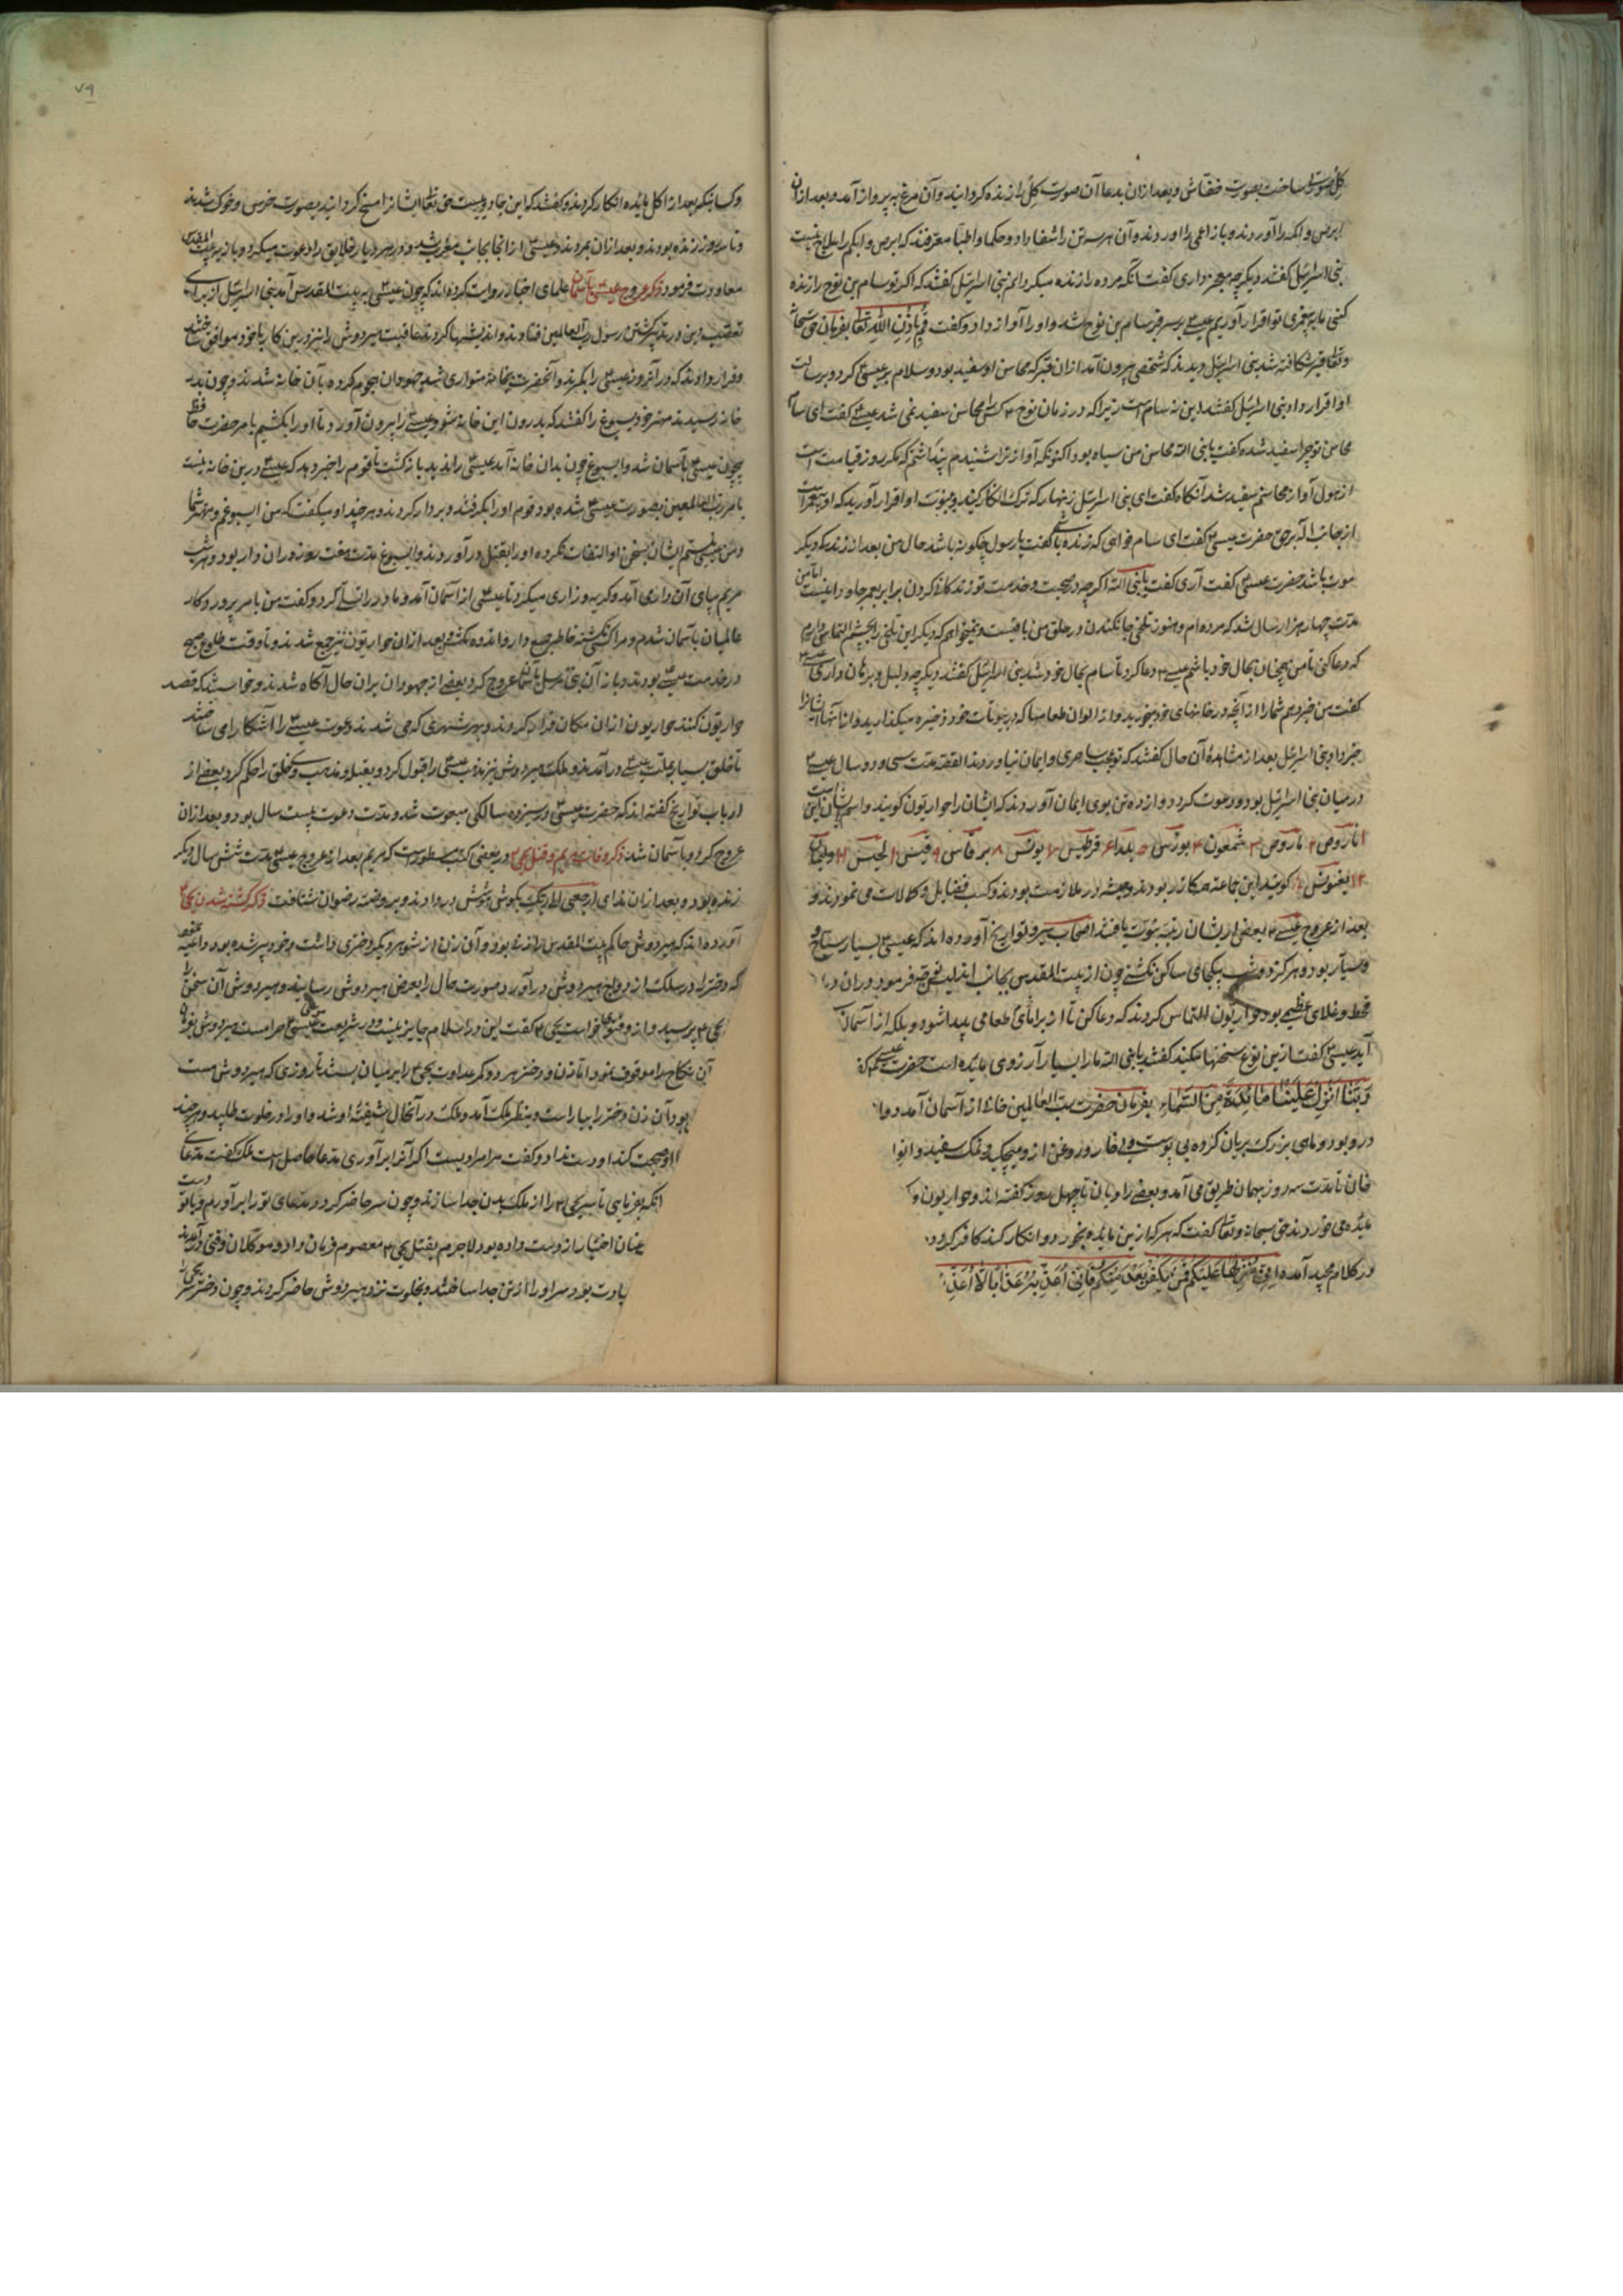 کل صورتی ساخت بصورت خفاش و بعد ازان بدعا آن صورت کل را زنده کردانید و آن مرغ به پرواز آمد و بعد ازان
ابرص و اکمه را آوردند و باز اعمی را آوردند و آن هر سه تن را شفا داد و حکما و اطبا معترفند که ابرص و ابکم را علاج نیست
بنی اسرائیل کفتند دیکر چه معجزه داری کفت آنکه مرده را زنده میکردانم بنی اسرائیل کفتند که اکر تو سام بن نوح را زنده
کنی ما به پیغمبری تو اقرار آوریم عیسی ع بر سر قبر سام بن نوح شد و او را آواز داد و کفت قم باذن الله تعالی بفرمان حق سبحانه
و تعالی قبر شکافته شد بنی اسرائیل دیدند که شخصی بیرون آمد ازان قبر که محاسن او سفید بود و سلام بر عیسی ع کرد و برسالت
او اقرار داد بنی اسرائیل کفتند این نه سام است زیرا که در زمان نوح ع کسی را محاسن سفید نمی شد عیسی ع کفت ای سام
محاسن تو چرا سفید شده کفت یا نبی الله محاسن من سیاه بود اکنون که آواز ترا شنیدم پنداشتم که مکر روز قیامت است
از هول آواز محاسنم سفید شد آنکاه کفت ای بنی اسرائیل زنهار که ترک انکار کنید و به نبوت او اقرار آورید که او پیغمبر است
از جانب اله برحق حضرت عیسی ع کفت ای سام خواهی که زنده باشی کفت یا رسول چکونه باشد حال من بعد از زندکی دیکر
موت باشد حضرت عیسی ع کفت آری کفت یا نبی الله اکر چه در صحبت و خدمت تو زندکانی کردن برابر عمر جاودانیست اما من
مدت چهار هزار سال شد که مرده ام و هنوز تلخی جان کندن در حلق من باقیست و نمیخواهم که دیکر این تلخی را بچشم التماس دارم
که دعا کنی تا من همچنان بحال خود باشم عیسی ع دعا کرد تا سام بحال خود شد بنی اسرائیل کفتند دیکر چه دلیل و برهان داری عیسی ع
کفت من خبر دهم شما را از آنچه در خانهای خود میخورید و از الوان طعامها که در بیوتات خود ذخیره میکذارید و از آنها ایشانرا
خبر داد بنی اسرائیل بعد از مشاهده آن حال کفتند که تو عجب ساحری و ایمان نیاوردند القصه مدت سی و دو سال عیسی ع
در میان بنی اسرائیل بود و دعوت کرد دوازده تن بوی ایمان آوردند که ایشان را حواریون کویند و اسم ایشان اینست
شمعون بونس یلدا قرطیس یونس بر قاس قیس لجیس
یغنوس کویند این جماعه کازر بودند و همیشه در ملازمت بودند و کسب فضایل و کمالات می نمودند و
بعد از عروج عیسی ع بعضی از ایشان رتبه نبوت یافتند اصحاب سیر و تواریخ آورده اند که عیسی ع بسیار سیاح و
سیار بود و هرکز دو شب بیکجای ساکن نکشتی چون از بیت المقدس بجانب نهضت فرمود و دران
قحط و غلای عظیم بود حواریون التماس کردند که دعا کن تا از برای ما طعامی پیدا شود و بلکه از آسمان
آید عیسی ع کفت ازین نوع سخنها مکنید کفتند یا نبی الله ما را بسیار آرزوی مایده است حضرت عیسی ع
ربنا انزل علینا مائدة من السماء بفرمان حضرت رب العالمین خانی از آسمان آمد
درو بود و ماهی بزرک بریان کرده بی پوست و بی خار و روغن ازو میچکید و نمک سفید و
خان تا مدت سه روز بهمان طریق می آمد و بعضی راویان تا چهل روز کفته اند و حواریون
مایده می خوردند حق سبحانه و تعالی کفت که هر که ازین مایده بخورد و انکار کند کافر کردد
در کلام مجید آمده انی منزلها علیکم فمن یکفر بعد منکم فانی اعذبه عذابا لا اعذبه
و کسانیکه بعد از اکل مایده انکار کردند و کفتند که این جادویست حق تعالی ایشانرا مسخ کردانید بصورت خرس و خوک شدند
و تا سه روز زنده بودند و بعد ازان بمردند و عیسی ع از انجا بجانب مغرب شد و در هر دیار خلایق را دعوت میکرد و باز به بیت المقدس
معاودت فرمود ذکر عروج عیسی ع بآسمان علمای اخبار روایت کرده اند که چون عیسی ع به بیت المقدس آمد بنی اسرائیل از برای
تعصب دین در پی کشتن رسول رب العالمین فتادند و اندیشها کردند عاقبت هیردوش را نیز درین کار با خود موافق ساختند
و قرار دادند که در آنروز عیسی ع را بکیرند و آنحضرت بخانه متواری شد جهودان هجوم کرده بآن خانه شدند و چون بدر
خانه رسیدند مهتر خود یسوغ را کفتند که بدرون این خانه شو و عیسی ع را بیرون آور تا او را بکشیم بامر حضرت حافظ
بیچون عیسی ع بآسمان شد و ایسوغ چون بدان خانه آمد عیسی ع را ندید باز کشت تا قوم را خبر دهد که عیسی ع درین خانه نیست
بامر رب العالمین بصورت عیسی ع شده بود قوم او را بکرفتند و بر دار کردند و هر چند او میکفت که من ایسوغم و مهتر شما
و من عیسی نیستم ایشان بسخن او التفات نکرده او را بقتل در آوردند و ایسوغ مدت هفت روز دران دار بود و هر شب
مریم بپای آن دار می آمد و کریه و زاری میکرد تا عیسی ع از آسمان آمد و مادر را تسلی کرد و کفت من بامر پروردکار
عالمیان بآسمان شدم و مرا کسی نکشته خاطر جمع دار و اندوه مکش بعد ازان حواریون نیز جمع شدند و تا وقت طلوع صبح
در خدمت عیسی ع بودند و باز آن نبی مرسل بآسمان عروج کرد بعضی از جهودان بران حال آکاه شدند و خواستند که قصد
حواریون کنند حواریون ازان مکان فرار کردند و بهر شهری که می شدند دعوت عیسی ع را آشکارا می ساختند
تا خلق بسیار بملت عیسی ع در آمدند و ملک هیردوش نیز مذهب عیسی ع را قبول کرد و بقبله و مذهب وی خلق را حکم کرد بعضی از
ارباب تواریخ کفته اند که حضرت عیسی ع در سیزده سالکی مبعوث شد و مدت دعوت بیست سال بود و بعد ازان
عروج کرد و بآسمان شد ذکر وفات مریم و قتل یحیی ع در بعضی کتب مسطور است که مریم بعد از عروج عیسی ع مدت شش سال دیکر
زنده بود و بعد ازان ندای ارجعی الی ربک بکوش هوشش در دادند و بروضه رضوان شتافت ذکر کشته شدن یحیی ع
آورده اند که هیردوش حاکم بیت المقدس را زنی بود و آن زن از شوهر دیکر دختری داشت و خود پیر شده بود داعیه
که دختر را در سلک ازدواج هیردوش در آورد صورت حال را بعرض هیردوش رسانید و هیردوش آن سخن را
یحیی ع پرسید و ازو فتوی خواست یحیی ع کفت این در اسلام جایز نیست و در شریعت موسی و عیسی ع حرامست هیردوش
آن نکاح را موقوف نمود اما زن و دختر هر دو کمر عداوت یحیی ع را بر میان بستند تا روزی که هیردوش مست
بود آن زن دختر را بیاراست و بنظر ملک آمد و ملک در آنحال شیفته او شد و او را در خلوت طلبید و هر چند
او صحبت کند او دست نداد و کفت مرا مرادیست اکر آنرا بر آوری مدعا حاصل است ملک کفت مدعای
آنکه بفرمایی تا سر یحیی ع را از ملک بدن جدا سازند و چون سر حاضر کردد مدعای تو را بر آورم
عنان اختیار از دست داده بود لاجرم بقتل یحیی ع معصوم فرمان داد و موکلان وقتی در آمدند
بود سر او را از تن جدا ساختند و بخلوت نزد هیردوش حاضر کردند و چون دختر سر یحیی را